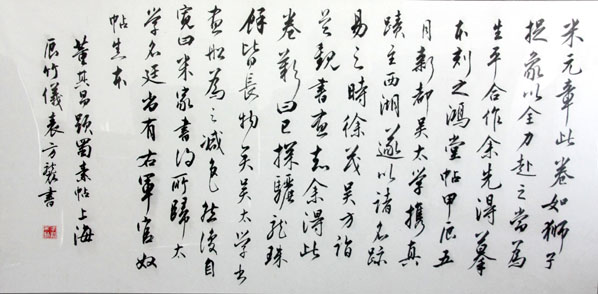 米元章此卷如獅子
捉象以全力赴之當為
生平合作余先得摹
本刻之鴻堂帖甲辰五
月新都吳太學攜真
蹟至西湖遂以諸名跡
易之時徐茂吳方詣
吳觀書畫知余得此
卷歎曰已探驪龍珠
餘皆長物矣吳太學書
畫船為之減色然復自
寬曰米家書得所歸太
學名廷尚有右軍官奴
帖真本
董其昌題蜀素帖上海
辰竹儀表方書